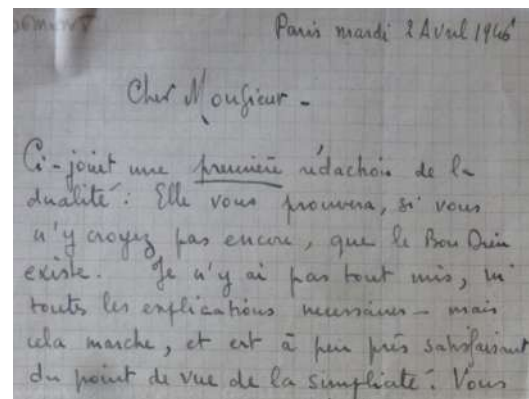 Paris mardi 2 Avril 1946
Cher Monsieur -
Ci-joint une première rédaction de la
dualité. Elle vous prouvera, si vous
n'y croyez pas encore, que le Bon Dieu
existe. Je n'y ai pas tout mis, ni
toutes les explications nécessaires - mais
cela marche, et est à peu près satisfaisant
du point de vue de la simplicité. Vous